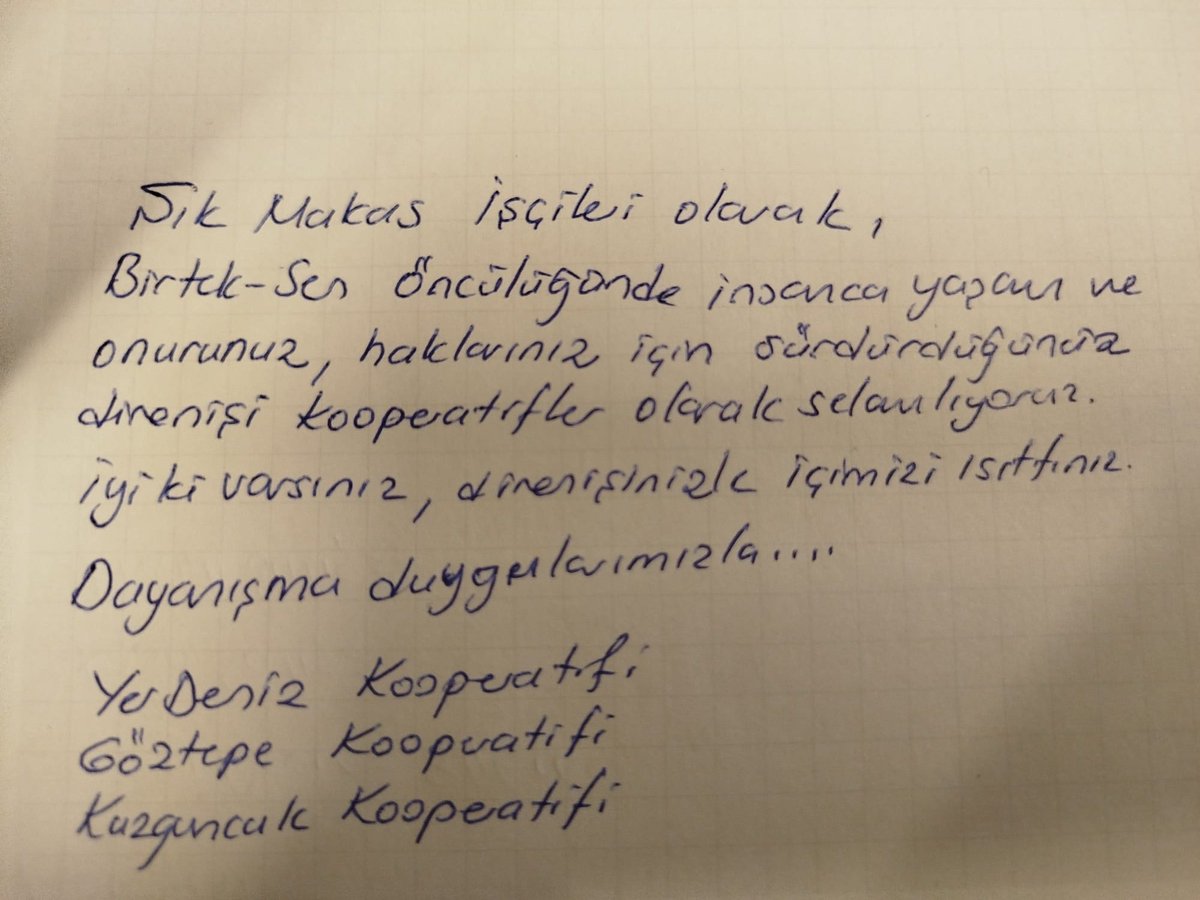 Şık Makas İşçileri olarak,
Birtek-Sen öncülüğünde insanca yaşam ve
onurunuz, haklarınız için sürdürdüğünüz
direnişi kooperatifler olarak selamlıyoruz.
iyi ki varsınız, direnişinizle içimizi ısıttınız.
Dayanışma duygularımızla....
YerDeniz Kooperatifi
Göztepe Kooperatifi
Kuzguncuk Kooperatifi